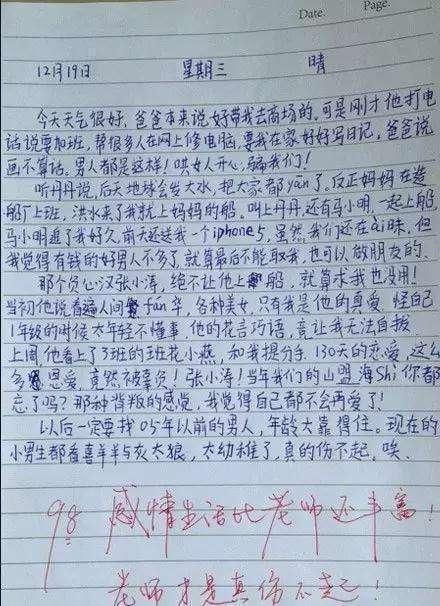 Date.
Page.
12月19日 星期三 晴
今天天气很好,爸爸本来说好带我去商场的,可是刚才他打电
话说要加班,帮很多人在网上修电脑,要我在家好好写日记,爸爸说
画不算话。男人都是这样!哄女人开心,骗我们!
听丹丹说,后天地球会发大水,把大家都yān了。反正妈妈在造
船厂上班,洪水来了我就上妈妈的船。叫上丹丹,还有马小明,一起上船,
马小明追了我好久,前天还送我一个iphone5,虽然我们还在ài昧,但
我觉得有钱的好男人不多了,就算最后不能取我,也可以做朋友的。
那个负心汉张小涛,绝不让他上船,就算求我也没用!
当初他说看遍人间fán华,各种美女,只有我是他的真爱 怪自己
1年级的时候太年轻不懂事,他的花言巧语,竟让我无法自拔
上周他看上了3班的班花小燕,和我提分手,130天的恋爱,这么
多恩爱,竟然被辜负!张小涛!当年我们的山盟海Shi你都
忘了吗?那种背叛的感觉,我觉得自己都不会再爱了!
以后一定要找05年以前的男人,年龄大靠得住。现在的
小男生都看喜羊羊与灰太狼,太幼稚了,真的伤不起,唉、
98 感情生活比老师还丰富!
老师才是真伤不起!